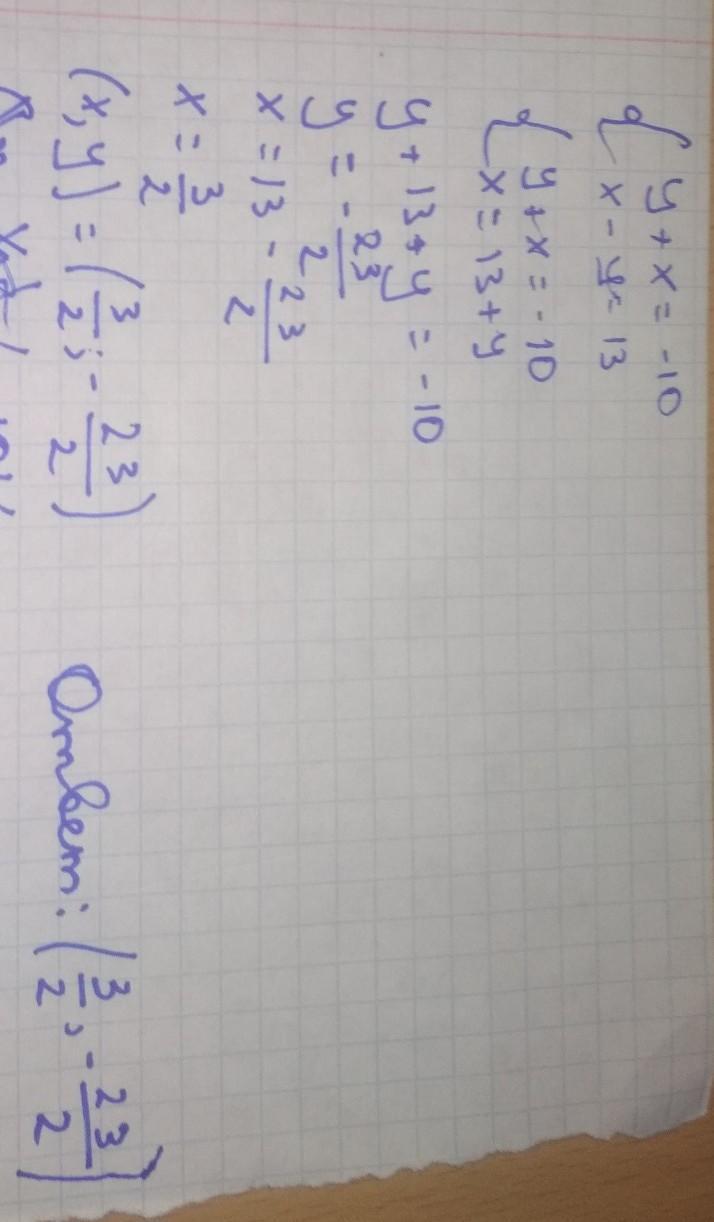 { y + x = -10
x - y = 13
{ y + x = -10
x = 13 + y
y + 13 + y = -10
y = - 23/2
x = 13 - 23/2
x = 3/2
(x, y) = (3/2; - 23/2)
Ответ: (3/2, - 23/2)